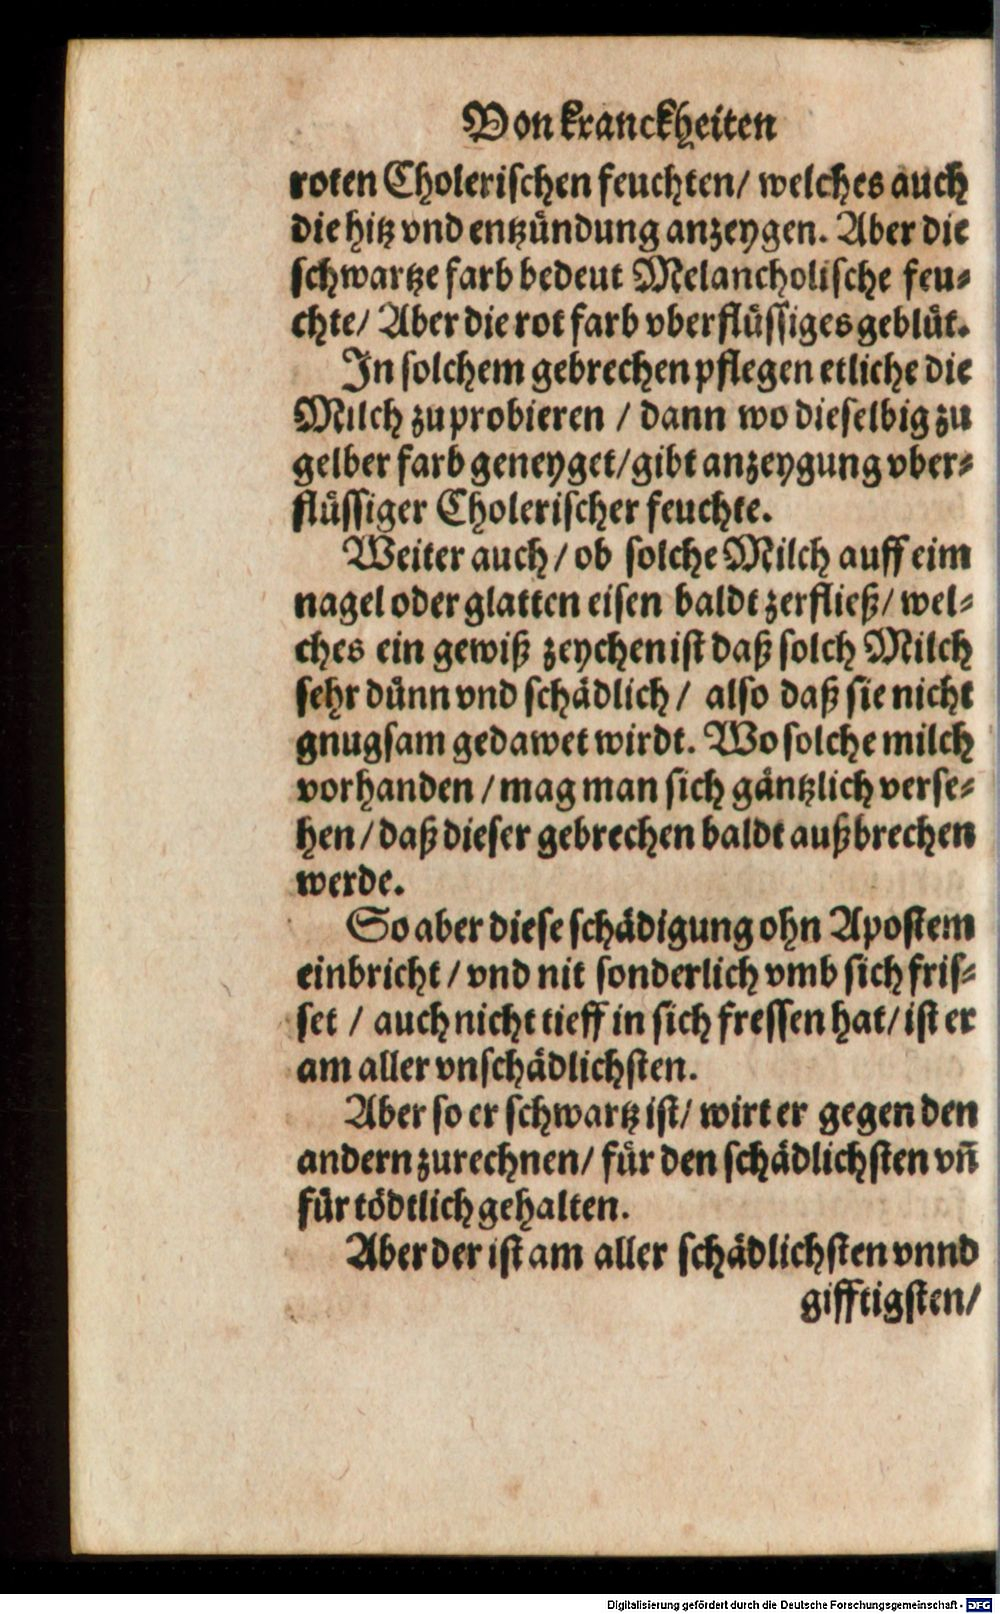 Von kranckheiten
roten Cholerischen feuchten/ welches auch
die hitz vnd entzündung anzeygen. Aber die
schwartze farb bedeut Melancholische feu⸗
chte/ Aber die rot farb vberflüssiges geblüt.
In solchem gebrechen pflegen etliche die
Milch zu probieren / dann wo dieselbig zu
gelber farb geneyget/ gibt anzeygung vber⸗
flüssiger Cholerischer feuchte.
Weiter auch/ ob solche Milch auff eim
nagel oder glatten eisen baldt zerfließ/ wel⸗
ches ein gewiß zeychen ist daß solch Milch
sehr dünn vnd schädlich/ also daß sie nicht
gnugsam gedawet wirdt. Wo solche milch
vorhanden / mag man sich gäntzlich verse⸗
hen/ daß dieser gebrechen baldt außbrechen
werde.
So aber diese schädigung ohn Apostem
einbricht / vnd nit sonderlich vmb sich fris⸗
set / auch nicht tieff in sich fressen hat/ ist er
am aller vnschädlichsten.
Aber so er schwartz ist/ wirt er gegen den
andern zurechnen/ für den schädlichsten vñ
für tödtlich gehalten.
Aber der ist am aller schädlichsten vnnd
gifftigsten/
Digitalisierung gefördert durch die Deutsche Forschungsgemeinschaft - DFG